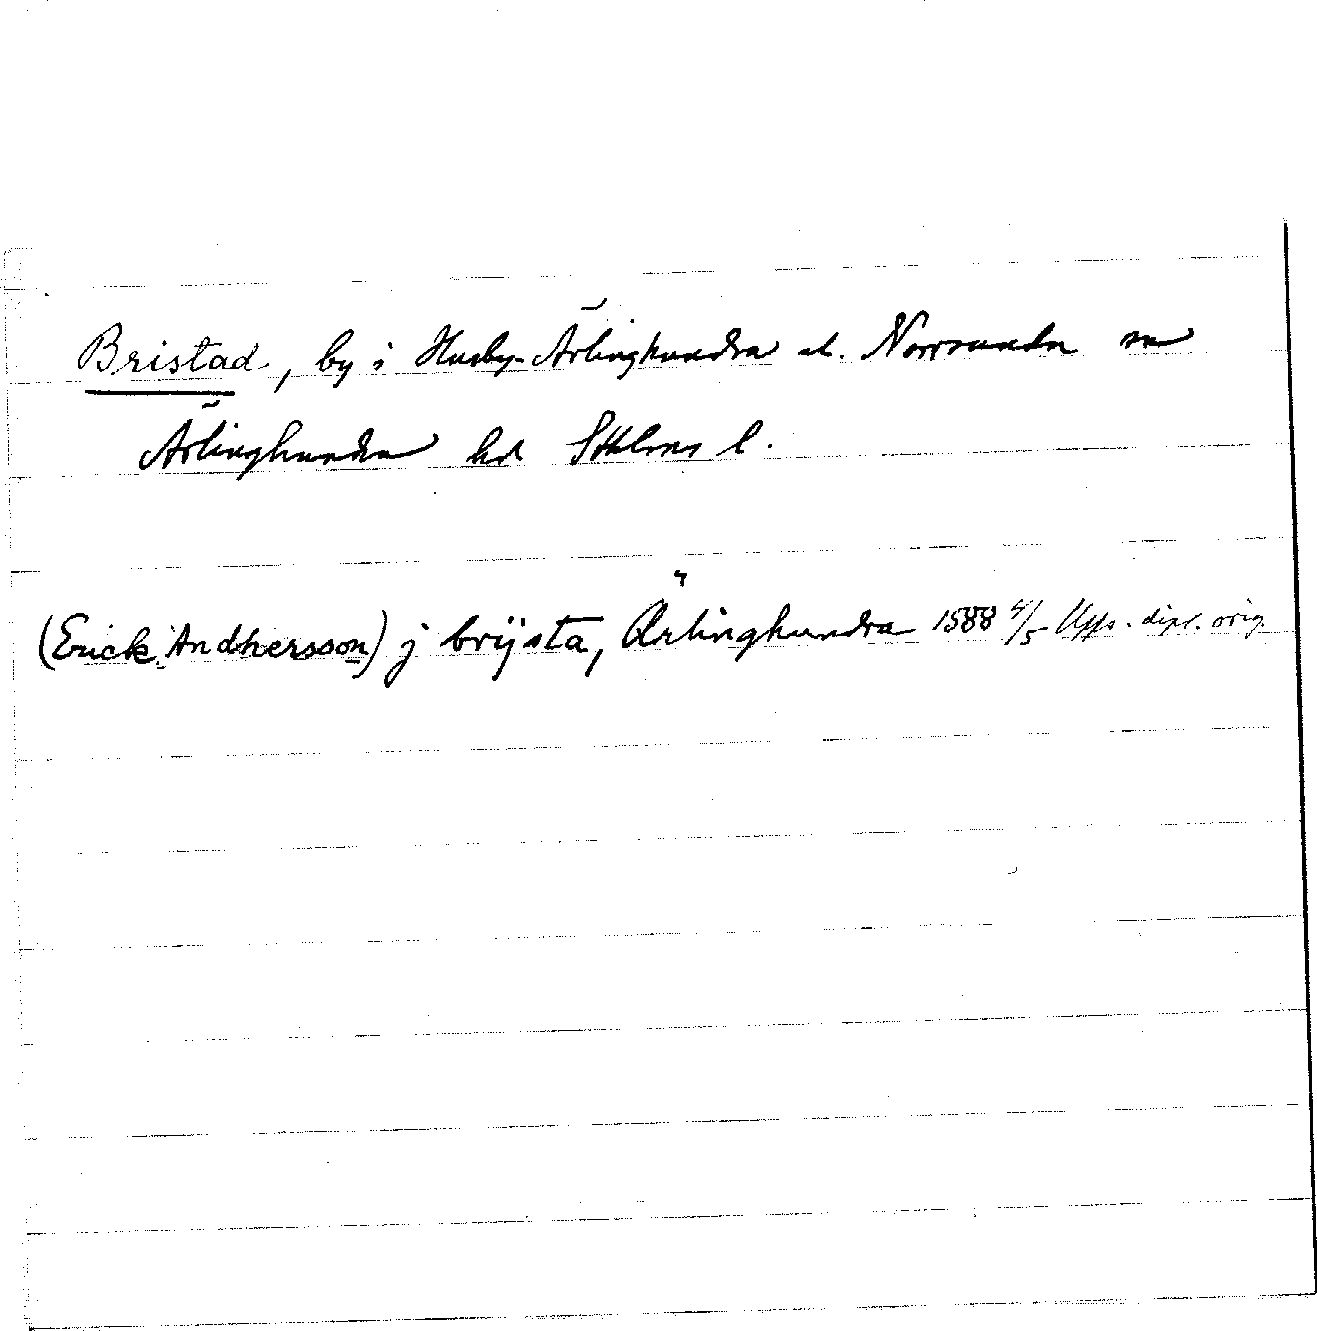 Bristad, by i Husby-Ärlinghundra el. Norrsunda sn
Ärlinghundra hd Sthlms l.
(Erick Andhersson) j brijsta, Ärlinghundra 1588 4/5 Upps. dipl. orig.